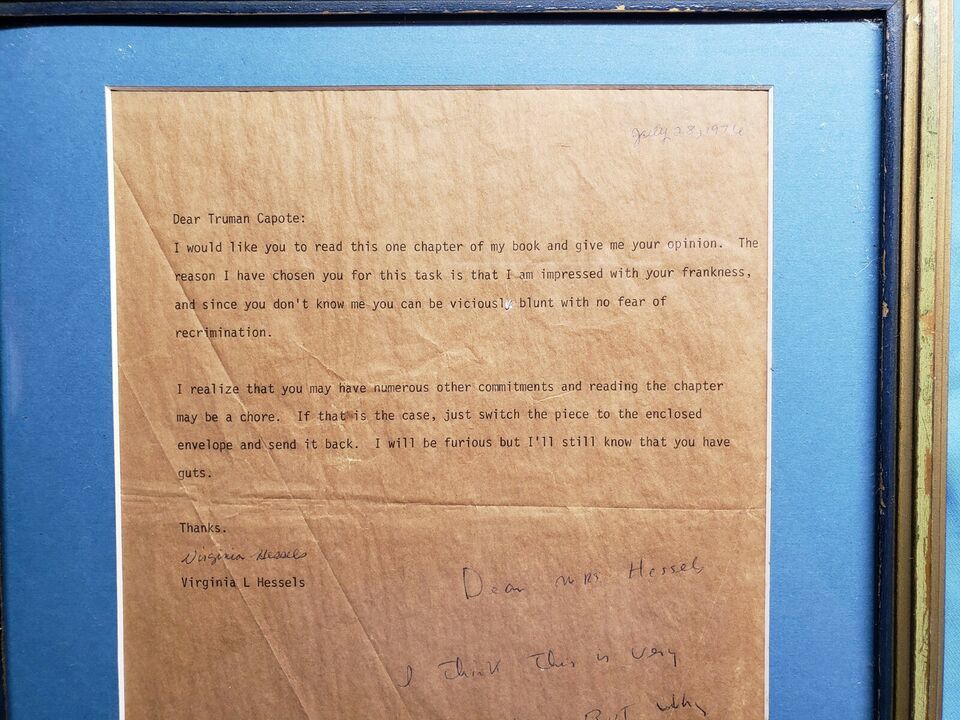 July 28, 1976
Dear Truman Capote:
I would like you to read this one chapter of my book and give me your opinion.  The
reason I have chosen you for this task is that I am impressed with your frankness,
and since you don't know me you can be viciously blunt with no fear of
recrimination.
I realize that you may have numerous other commitments and reading the chapter
may be a chore.  If that is the case, just switch the piece to the enclosed
envelope and send it back.  I will be furious but I'll still know that you have
guts.
Thanks.
Virginia Hessels
Virginia L Hessels
Dear Mrs Hessels
I think this is very
But why